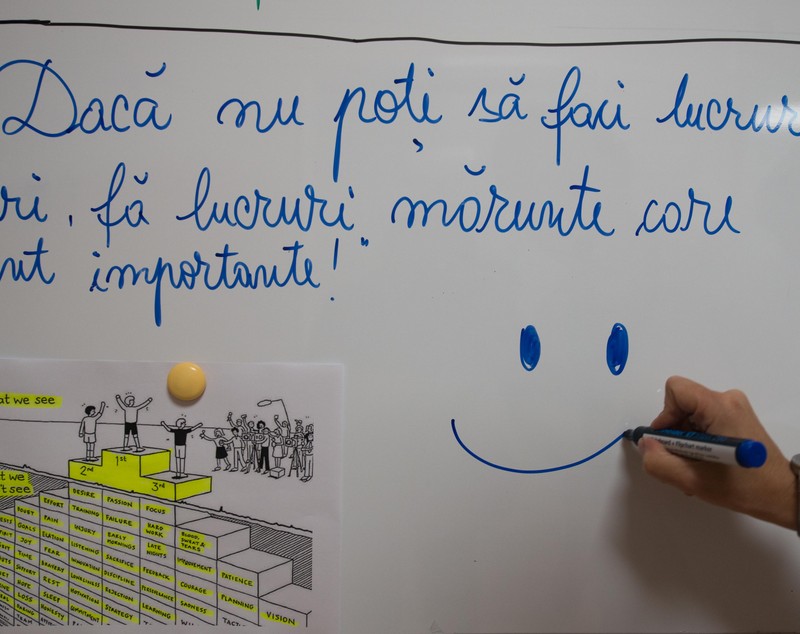 Dacă nu poți să faci lucrur
ri, fă lucruri mărunte care
nt importante!"
at we see
1st
2nd
3rd
t we
't see
DESIRE PASSION FOCUS
EFFORT TRAINING FAILURE HARD WORK BLOOD, SWEAT & TEARS
DOUBT PAIN INJURY EARLY MORNINGS LATE NIGHTS IMPROVEMENT PATIENCE
GOALS ELATION LISTENING SACRIFICE FEEDBACK COURAGE PLANNING VISION
JOY FEAR INNOVATION DISCIPLINE PERSEVERANCE SADNESS TACT
TIME BRAVERY LONELINESS REJECTION LEARNING
SUPPORT REST MOTIVATION STRATEGY
HOPE SLEEP COMMITMENT
LOSS HONESTY